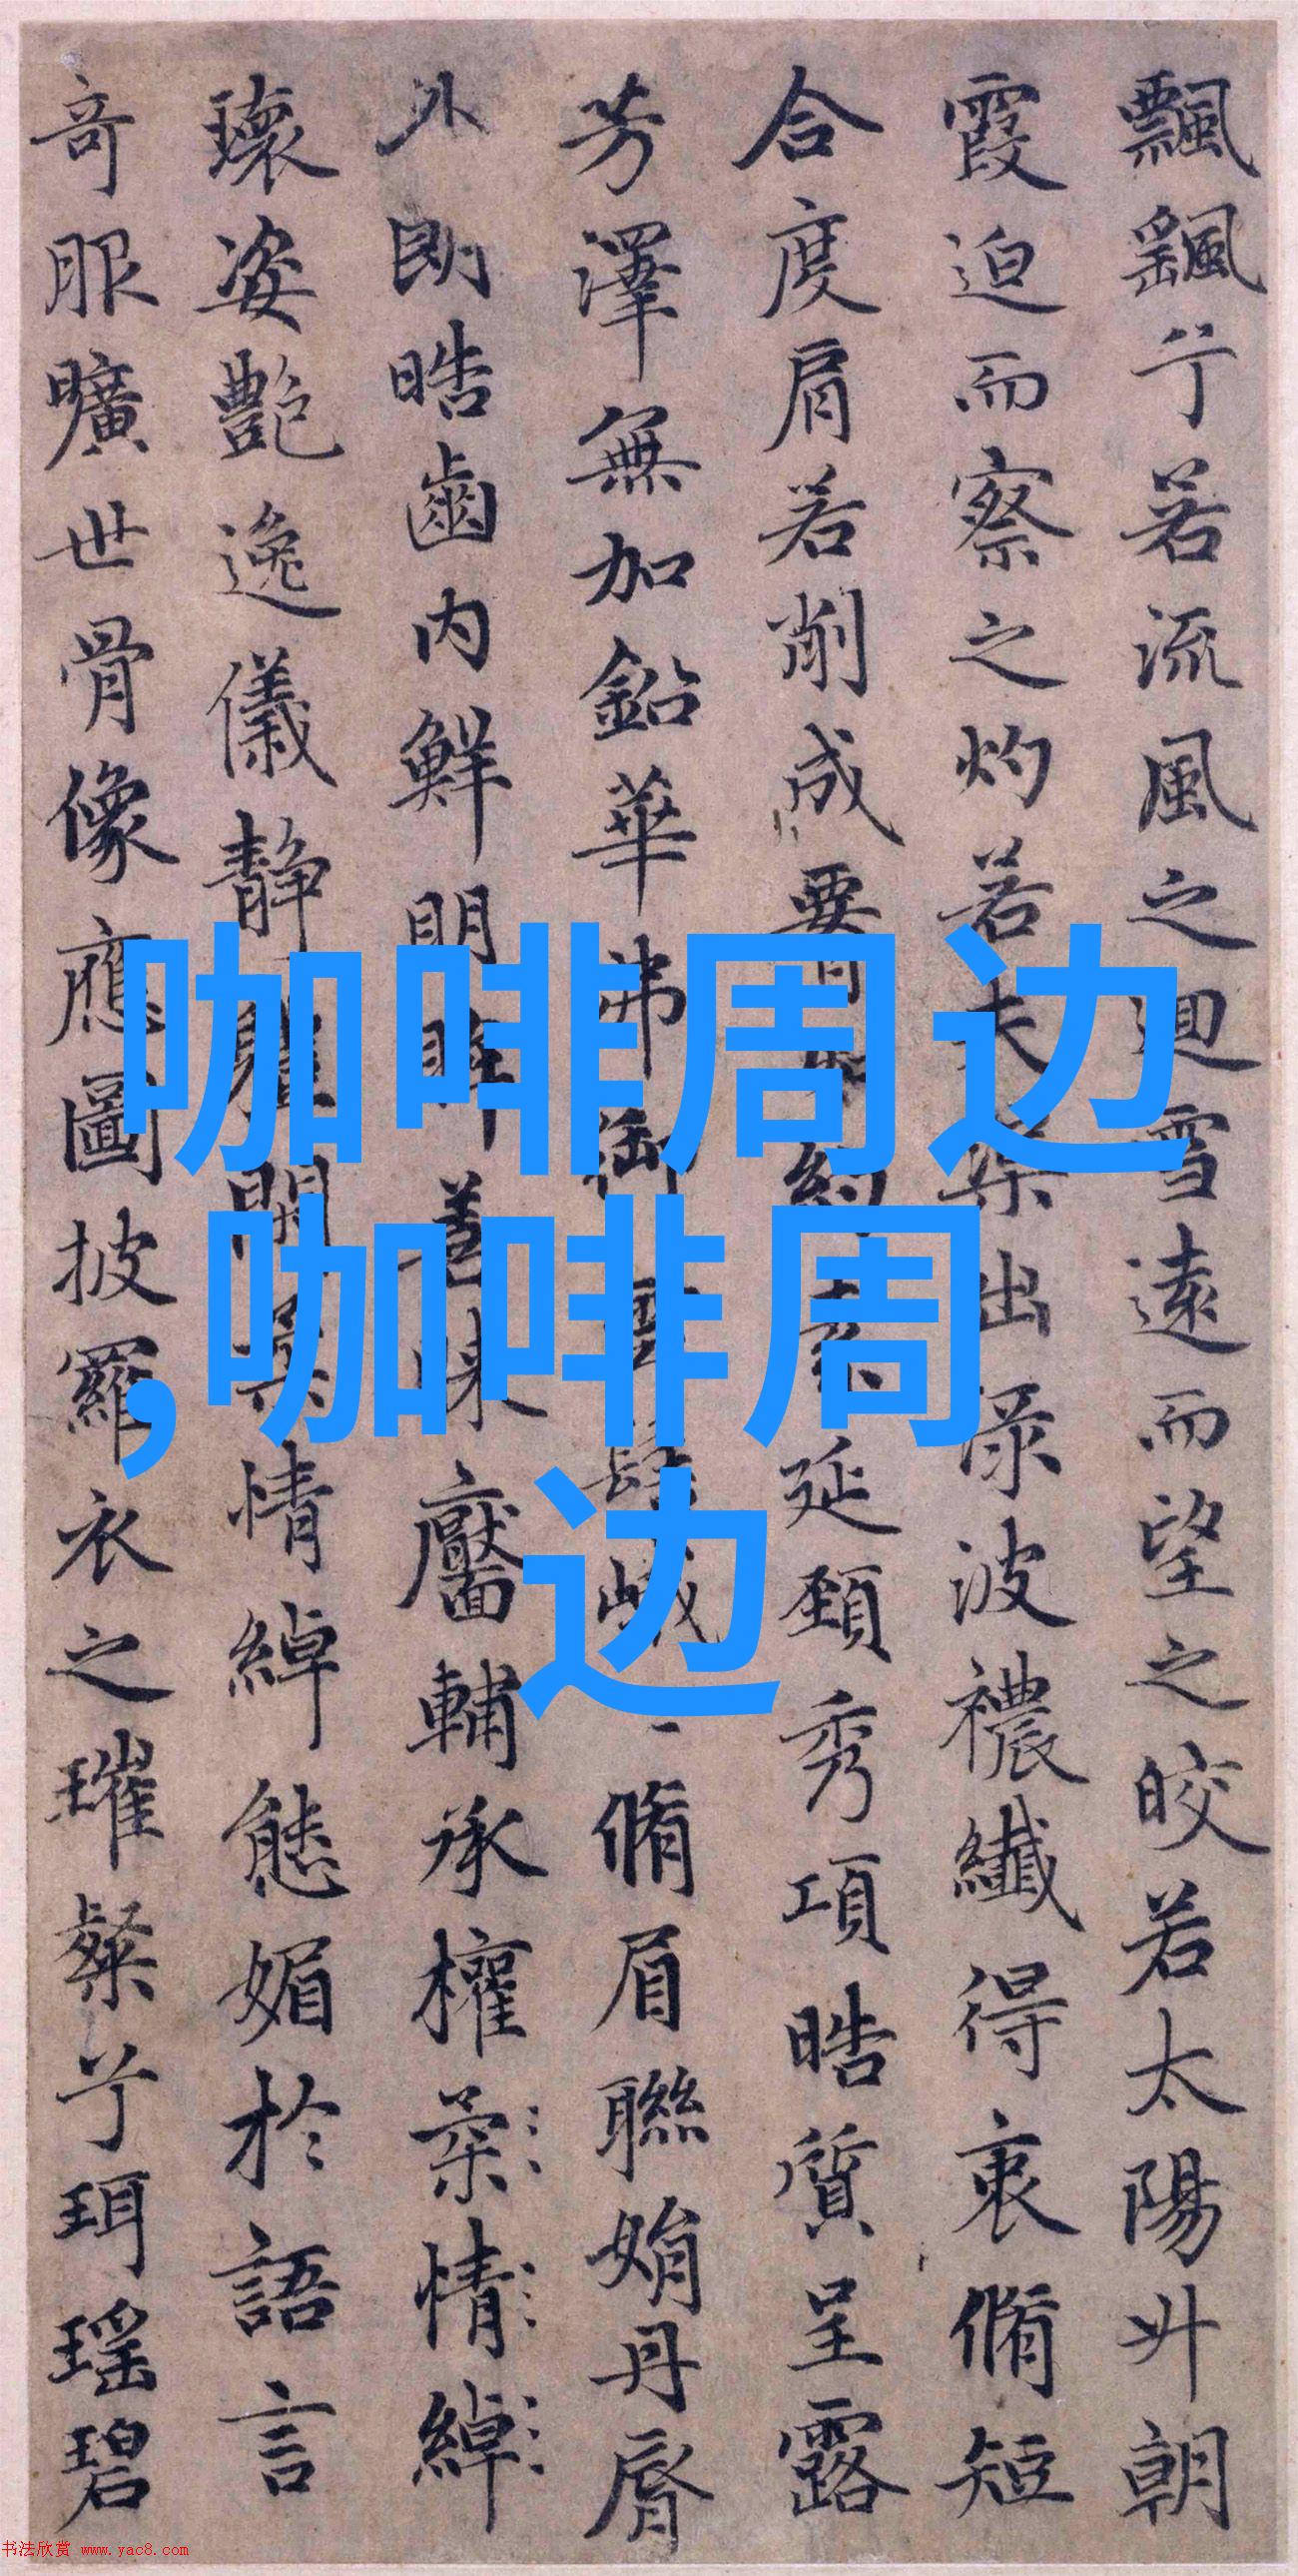 飄飖兮若流風之迴雪遠而望之皎若太陽升朝
霞迫而察之灼若夫渠出淥波襛纖得衷脩短
合度肩若削成要約素延頸秀項晧質呈露
芳澤無加鉛華弗御雲髻峨脩眉聯娟丹脣
外朗晧齒内鮮明眸善睞靨輔承權柔情綽
瓌姿艷逸儀靜體閑柔情綽態媚於語言
奇服曠世骨像應圖披羅衣之璀粲兮珥瑤碧
咖啡周边
,咖啡周
边
书法欣赏 www.yac8.com